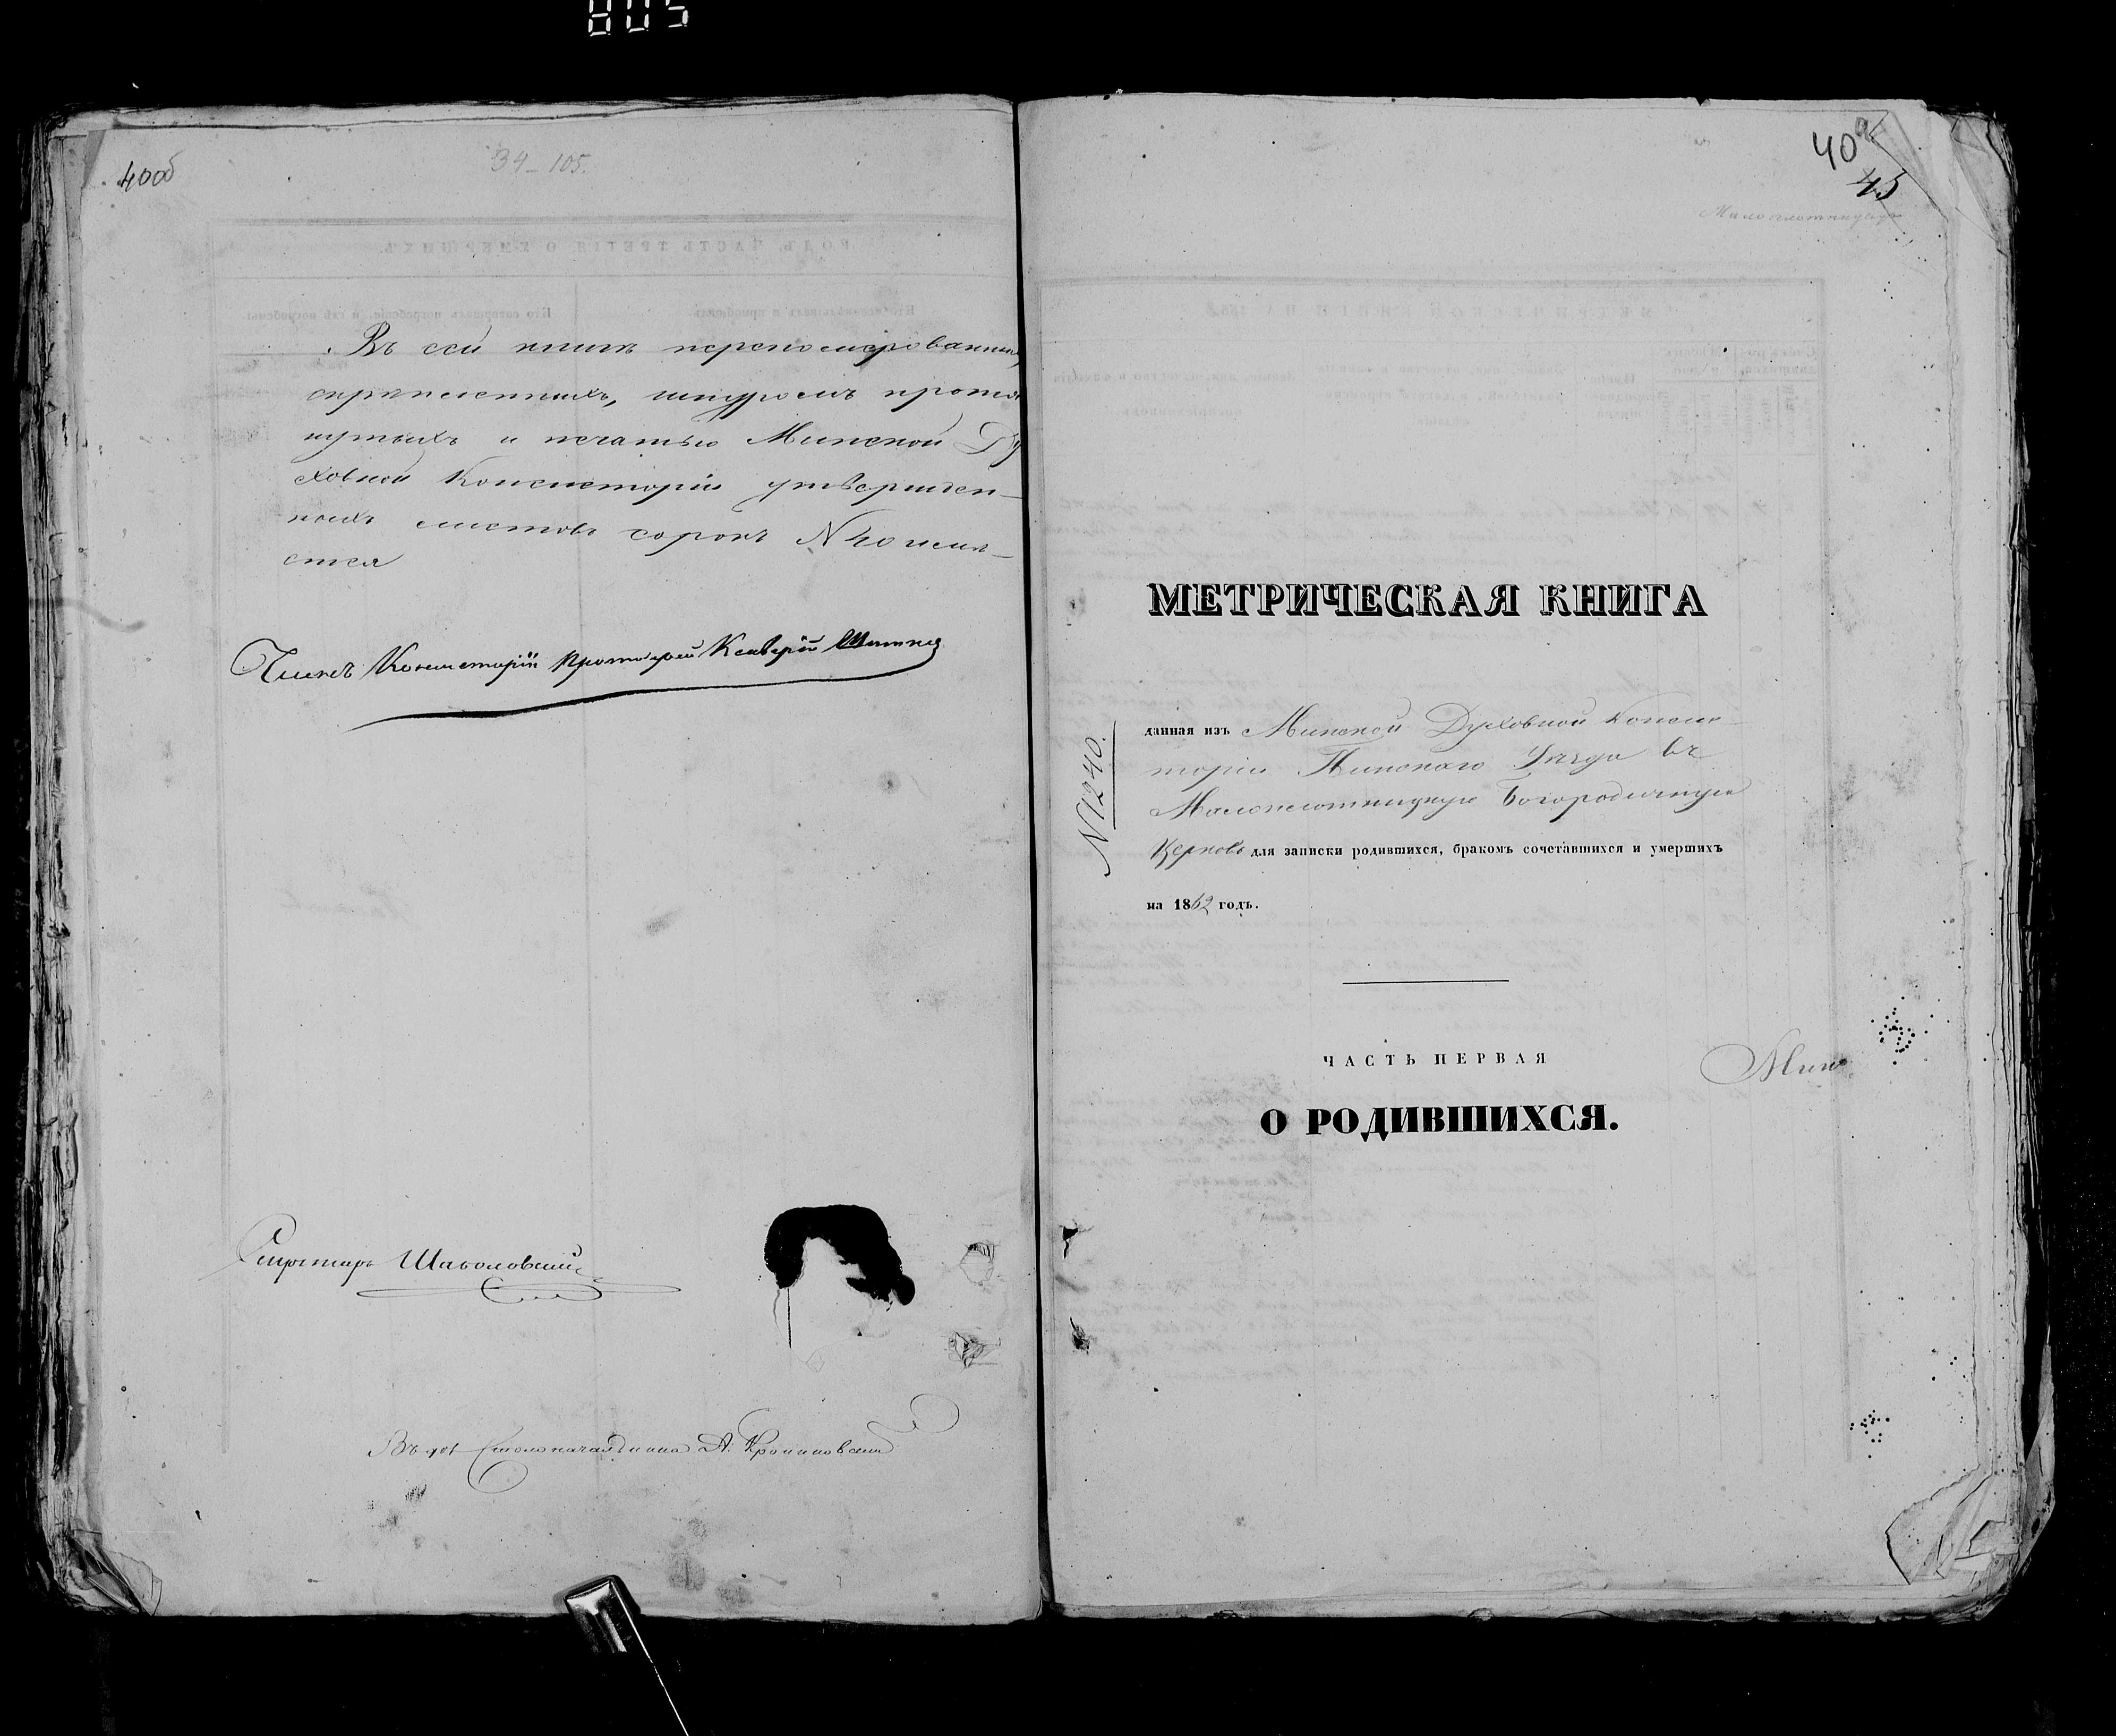 805
400об
34–105.
Въ сей книгѣ перенумерованныхъ,
скрѣпленныхъ, шнуромъ протя
нутыхъ и печатью Минской Ду
ховной Консисторіи утвержден–
ныхъ листовъ сорокъ N 40 имѣ–
ется
Членъ Консисторіи Протоіерей Ксаверій
Секретарь
Въ дол. Столоначальника А.
40
45
Малоплотницкая
МЕТРИЧЕСКАЯ КНИГА
N 1240.
данная изъ Минской Духовной Консис–
торіи Пинскаго Уѣзда въ
Малоплотницкую Богородичную
Церковь для записки родившихся, бракомъ сочетавшихся и умершихъ
на 1862 годъ.
ЧАСТЬ ПЕРВАЯ
Мин
О РОДИВШИХСЯ.